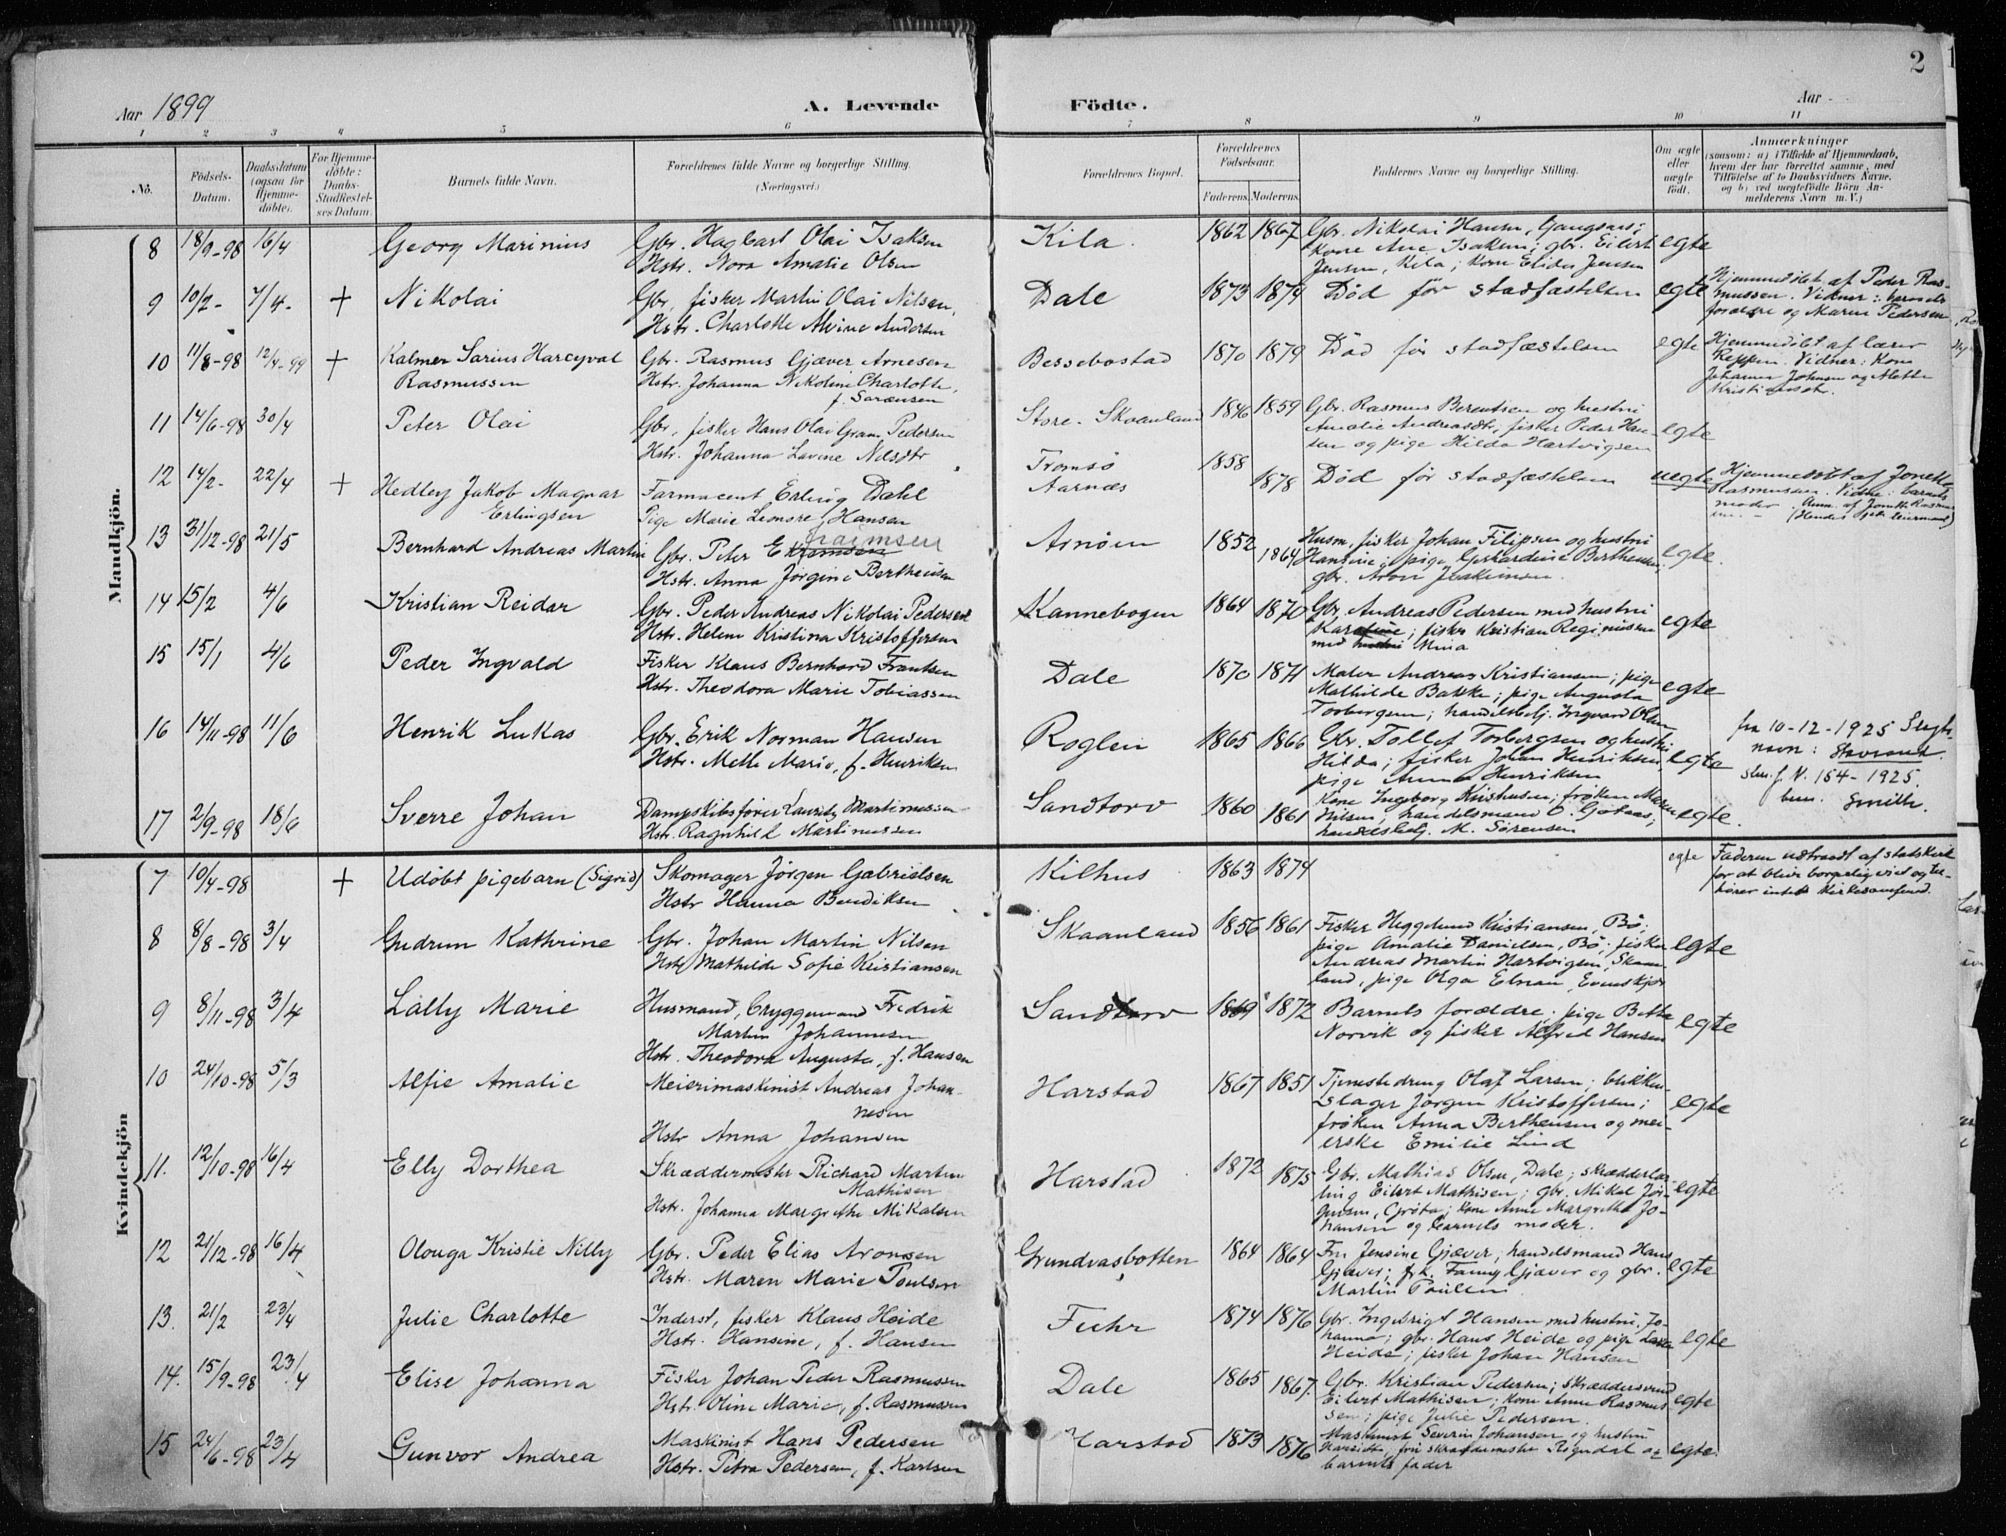 2
Aar 1899
A. Levende
Födte.
Aar
1 2 3 4 5 6 7 8 9 10 11
No.
Födsels-Datum.
Daabsdatum (ogsaa for Hjemmedöbte).
For Hjemmedöbte: Daabs-Stadfæstelses Datum.
Barnets fulde Navn.
Forældrenes fulde Navne og borgerlige Stilling. (Næringsvei.)
Forældrenes Bopæl.
Forældrenes Födselsaar.
Faderens. Moderens.
Faddernes Navne og borgerlige Stilling.
Om ægte eller uægte födt.
Anmærkninger
(saasom: a) i Tilfælde af Hjemmedaab, hvem der har forrettet samme, med Tilföielse af to Daabsvidners Navne, og b) ved uægtefödte Börn Anmelderens Navn m. V.)
Mandkjön.
8 18/9-98 16/4 Georg Marinius
Gbr. Hagbart Olai Isaksen
Hstr. Nora Amalie Olsen
Kila. 1862 1867
Gbr. Nikolai Hansen, Gangsaas;
Kone Ane Isaksen; gbr. Eilert
Jensen, Kila; kone Elida Jensen
egte
9 10/2- 7/4- + Nikolai
Gbr, fisker Martin Olai Nilsen,
Hstr. Charlotte Alvine Andersen
Dale 1873 1874
Död för stadfæstelsen
egte
Hjemmedöbt af Peder Ras-
mussen. Vidner: barnets
forældre og Maren Pedersen
10 11/8-98 12/4-99 + Kalmer Sarius Harcyval
Rasmussen
Gbr. Rasmus Gjæver Arnesen
Hstr. Johanna Nikoline Charlotte,
f. Sørensen
Bessebostad 1870 1879
Död för stadfæstelsen
egte
Hjemmedöbt af lærer
Reppen. Vidner: Kone
Johanna Johnsen og Alette
11 14/6-98 30/4 Peter Olai
Gbr, fisker Hans Olai Gram Pedersen
Hstr. Johanna Lavine Nilsdtr
Store-Skaanland 1846 1859
Gbr. Rasmus Berentsen og hustru
Amalie Andreasdtr, fisker Peder Han-
sen og pige Hilda Hartvigsen
egte
12 14/2- 22/4 + Hedley Jakob Magnar
Erlingsen
Farmaceut Erling Dahl
Pige Marie Leonore Hansen
Tromsö 1858
Aarnæs 1878
Död för stadfæstelsen
uegte
Hjemmedöbt af Jonetta
Rasmussen. Vidne: barnets
moder.
13 31/12-98 21/5 Bernhard Andreas Martin
Gbr. Peter
Hstr. Anna Jørgine Bertheusen
Arnöen 1852 1864
Husm, fisker Johan Filipsen og hustru
Hansine; pige Gerhardine Bertheusen;
gbr. Aron Joakimsen.
egte.
14 15/2 4/6 Kristian Reidar
Gbr. Peder Andreas Nikolai Pedersen
Hstr. Helene Kristina Kristoffersen
Kannebogen 1864 1870
Gbr. Andreas Pedersen med hustru
Karoline; fisker Kristian Reginiussen
med hustru Mina
egte
15 15/1 4/6 Peder Ingvald
Fisker Klaus Bernhard Frantsen
Hstr. Theodora Marie Tobiassen
Dale 1870 1871
Maler Andreas Kristiansen; pige
Mathilde Bakke; pige Augusta
Torbergsen; handelsbetj. Ingvard Olsen
egte
16 14/11-98 11/6 Henrik Lukas
Gbr. Erik Norman Hansen
Hstr. Mette Marie, f. Henriksen
Roglen 1865 1866
Gbr. Tollef Torbergsen og hustru
Hilda; fisker Johan Henriksen,
pige Anna Henriksen
egte
fra 10-12-1925 Slegts-
navn:
No. 154-1925.
17 2/9-98 18/6 Sverre Johan
Dampskibsfører Lauritz Martinussen
Hstr. Ragnhild Martinussen
Sandtorv 1860 1861
Kone Ingeborg Kristiansen; frøken Maren
Nilsen; handelsmand O. Gjøtaas;
handelsbetj. M. Sørensen
egte.
Kvindekjön
7 10/4-98 + Udöbt pigebarn (Sigrid)
Skomager Jørgen Gabrielsen
Hstr Hanna Bendiksen
Kilhus 1863 1874
egte
Faderen udtraadt af statskirk
for at blive borgerlig viet og til-
hører intet kirkesamfund.
8 8/8-98 3/4 Gudrun Kathrine
Gbr. Johan Martin Nilsen
Hstr Mathilde Sofie Kristiansen
Skaanland 1856 1861
Fisker Heggelund Kristiansen, Bö;
pige Amalie Danielsen, Bö; fisker
Andreas Martin Hartvigsen, Skaan-
land, pige Olga Elnan, Evenskjær
egte
9 8/11-98 3/4 Lally Marie
Husmand, bryggemand Fredrik
Martin Johannesen
Hstr. Theodora Augusta, f. Hansen
Sandtorv 1869 1872
Barnets forældre; pige Betta
Norvik og fisker Alfred Hansen
egte
10 24/10-98 5/3 Alfie Amalie
Meierimaskinist Andreas Johan-
nesen
Hstr Anna Johansen
Harstad 1867 1851
Tjenestedreng Olaf Larsen; blikken-
slager Jørgen Kristoffersen;
frøken Anna Bertheusen og mei-
erske Emilie Lind
egte
11. 12/10-98 16/4 Elly Dorthea
Skræddermester Richard Martin
Mathisen
Hstr. Johanna Margrethe Mikalsen
Harstad 1872 1875
Gbr. Mathias Olsen, Dale; skrædderlær-
ling Eilert Mathisen; gbr. Mikal Jør-
gensen, Grøtø; kone Anne Margrethe Jo-
hansen og barnets moder.
egte
12 21/12-98 16/4 Olouga Kristie Nilly
Gbr. Peder Elias Aronsen
Hstr. Maren Marie Poulsen
Grundvasbotten 1864 1864
Fru Jensine Gjæver; handelsmand Hans
Gjæver; frk. Fanny Gjæver og gbr.
Martin Paulsen
egte
13. 21/2 23/4 Julie Charlotte
Inderst, fisker Klaus Heide
Hstr. Hansine, f. Hansen
Fuhr 1874 1876
Gbr. Ingebrigt Hansen med hustru Jo-
hanna; gbr. Hans Heide og pige
Heide; fisker Johan Hansen
egte
14. 15/9-98 23/4 Elise Johanna
Fisker Johan Peder Rasmussen
Hstr. Oline Marie, f. Rasmussen
Dale 1865 1867
Gbr. Kristian Pedersen; skræddersvend
Eilert Mathisen; kone Anne Rasmus-
sen; pige Julie Pedersen.
egte
15 24/6-98 23/4 Gunvor Andrea
Maskinist Hans Pedersen
Hstr. Petra Pedersen, f. Karlsen
Harstad 1873 1876
Maskinist Severin Johansen og hustru
fru skræddermester Rogndal og
barnets fader
egte.